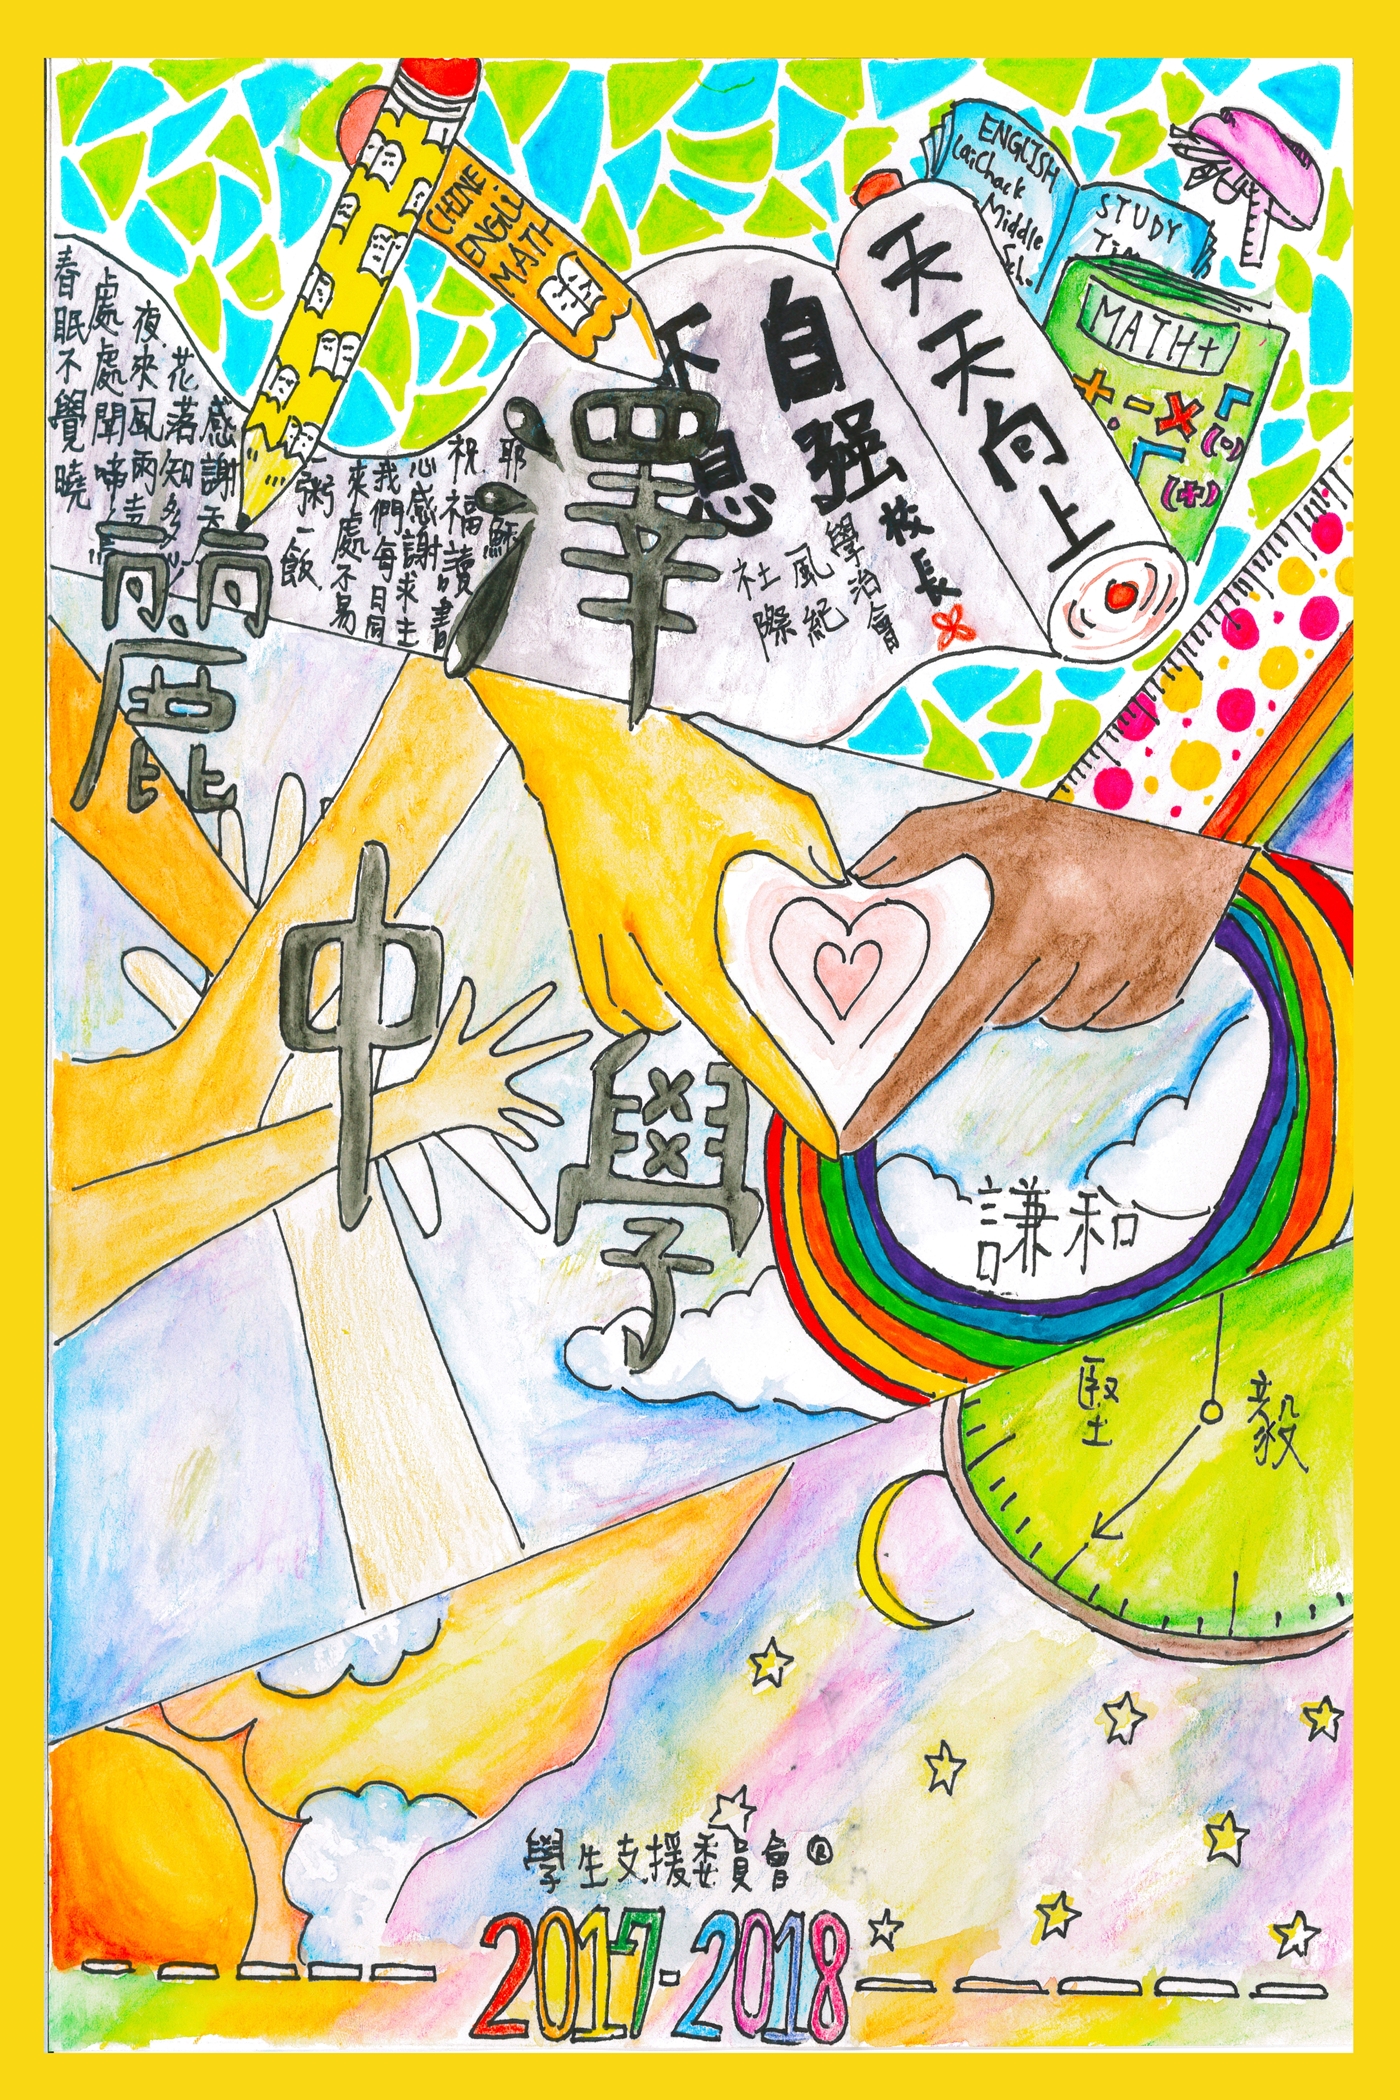 CHINE.
ENGLI.
MATH
ENGLISH
LaiChack
Middle
Sch.
STUDY
MATH+
天天向上
自强
不息
校長
學治會
風紀
社際
春眠不覺曉
處處聞啼
夜來風雨
花落知多
感謝天
一粥一飯
來處不易
我們每日同
心感謝求主
祝福讀書
耶穌
麗澤
中學
謙和
堅毅
學生支援委員會®
2017-2018